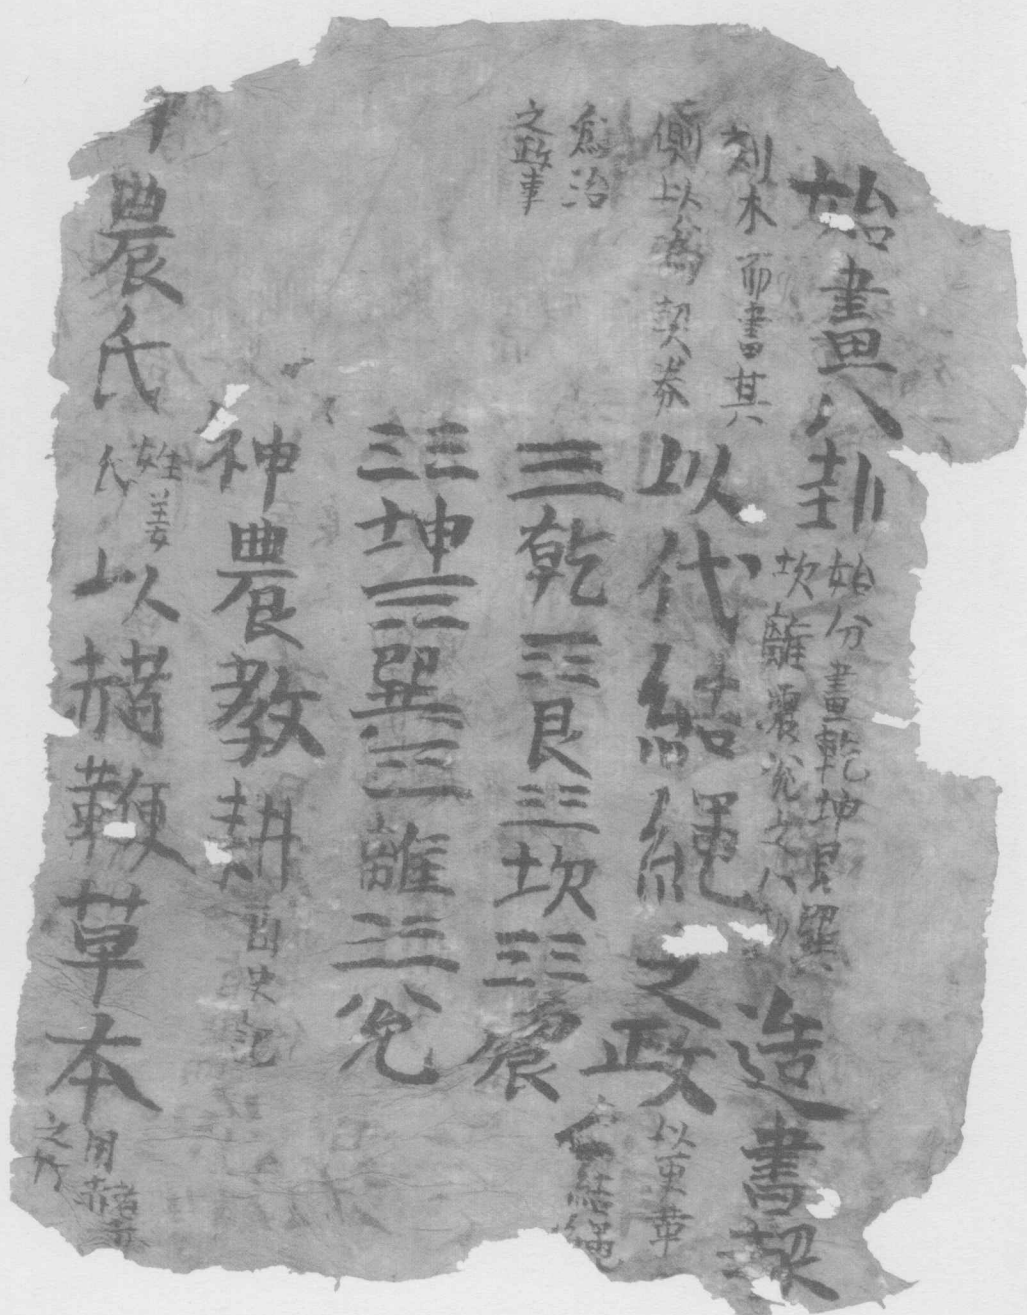 始畫八卦
始分畫乾坤艮巽
坎離震兌之八
造書契
刻木而書其
側以爲契券
以代結繩之政
以更革
結繩
爲治
之政事
☰乾☶艮☵坎☳震
☷坤☴巽☲離☱兌
神農教耕
史記
農氏
姓姜
氏
以赭鞭草本
用赭
之